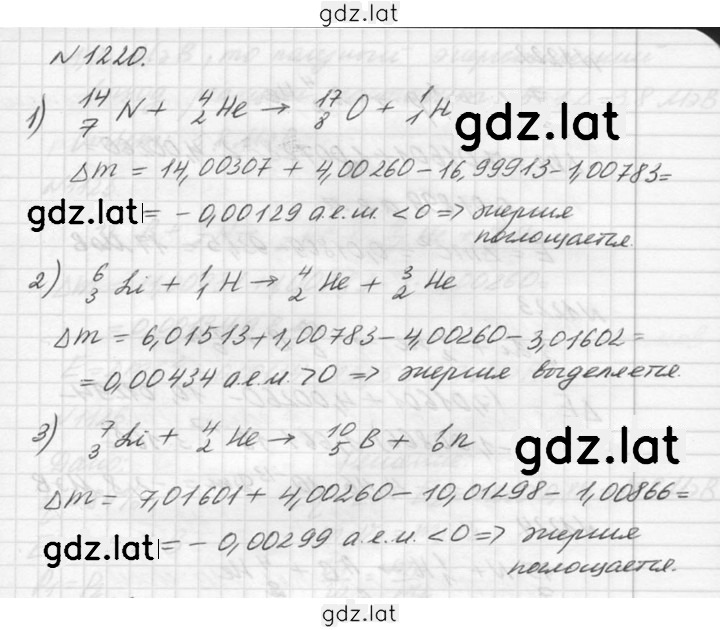 gdz.lat
N 1220.
1) ¹⁴₇N + ⁴₂He → ¹⁷₈O + ¹₁H
gdz.lat
Δm = 14,00307 + 4,00260 - 16,99913 - 1,00783 =
gdz.lat
= - 0,00129 а.е.м. < 0 => энергия
поглощается.
2) ⁶₃Li + ¹₁H → ⁴₂He + ³₂He
Δm = 6,01513 + 1,00783 - 4,00260 - 3,01602 =
= 0,00434 а.е.м. > 0 => энергия выделяется.
3) ⁷₃Li + ⁴₂He → ¹⁰₅B + ¹₀n
gdz.lat
Δm = 7,01601 + 4,00260 - 10,01298 - 1,00866 =
gdz.lat
= - 0,00299 а.е.м. < 0 => энергия
поглощается.
gdz.lat